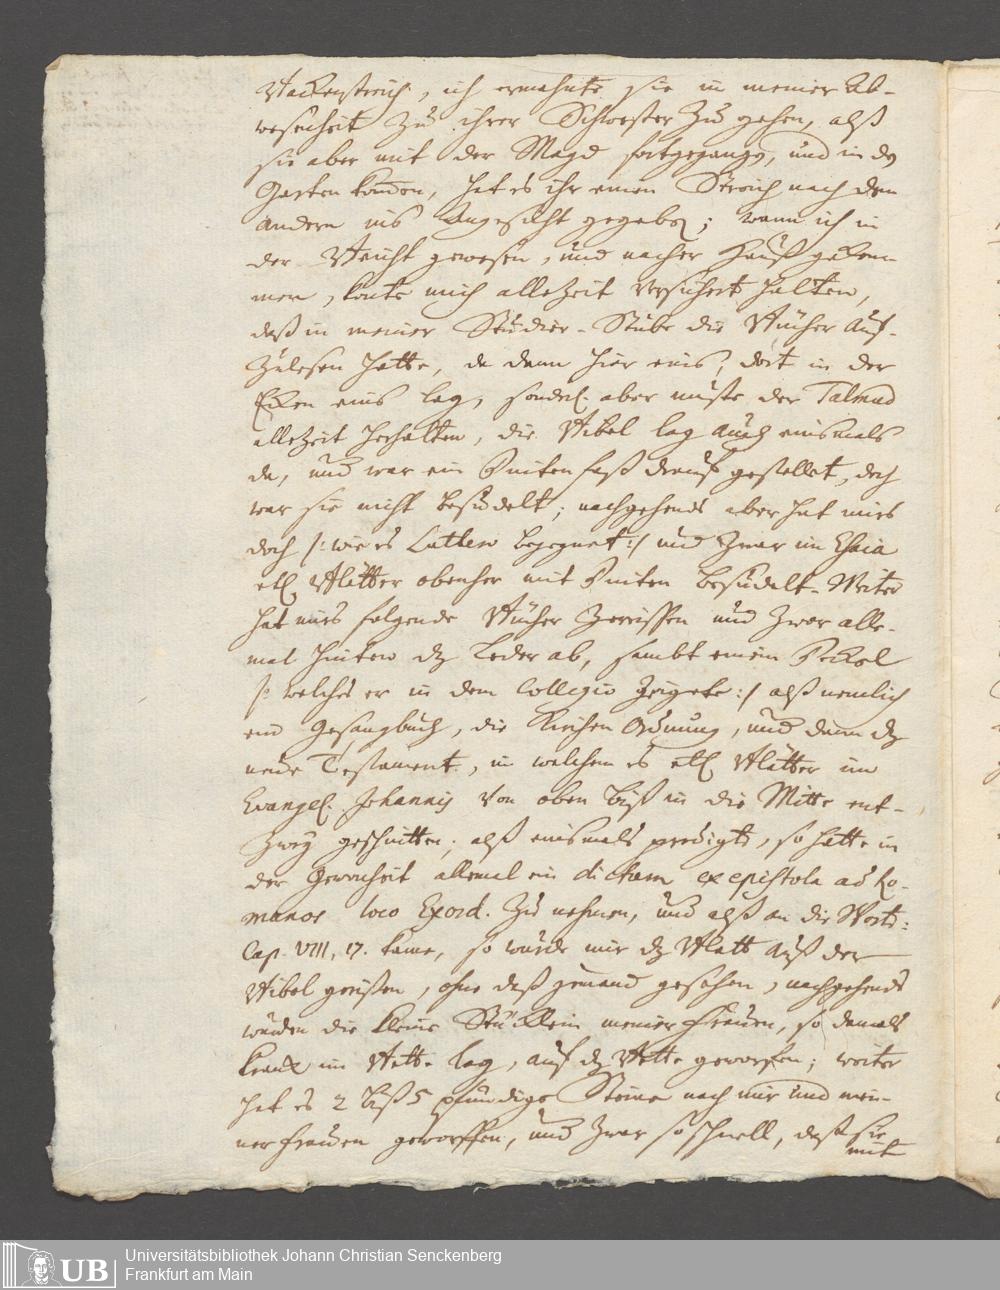 Backenstreich, ich ermahnte sie in meiner Ab-
wesenheit zu ihrer Schwester zu gehen, alß
sie aber mit der Magd fortgegangen, und in den
Garten kommen, hat es ihr einen Streich nach dem
andern ins Angesicht gegeben; wann ich in
der Beicht gewesen, und nacher Hauß gekom-
men, konte mich allezeit versichert halten,
daß in meiner Studier-Stube die Bücher auf-
zulesen hatte, da dann hier eins, dort in der
Ecken eins lag, sonderl. aber muste der Talmud
allezeit herhalten, die Bibel lag auch einsmals
da, und war ein Dintenfaß drauf gestellet, doch
war sie nicht besudelt; nachgehends aber hat mirs
doch /: wie es Luthero begegnet :/ und zwar im Esaia
etl. Blätter obenher mit Dinten besudelt. Weiter
hat mirs folgende Bücher zerrissen und zwar alle-
mal hinten dz Leder ab, sambt einem Deckel
/: welches er in dem Collegio zeigete :/ alß nemlich
ein Gesangbuch, die Kirchen Ordnung, und dann dz
neue Testament, in welchem es etl. Blätter im
Evangel. Johannis von oben biß in die Mitte ent-
zwey geschnitten; alß einsmals predigte, so hatte in
der Gewonheit allemal ein dictum ex epistola ad Ro-
manos loco Exord. zu nehmen, und alß an die Worte:
Cap. VIII, 17. kame, so wurde mir dz Blatt auß der
Bibel gerißen, ohne daß jemand gesehen, nachgehends
wurden die kleine Stücklein meiner Frauen, so damals
kranck im Bette lag, auf dz Bette geworfen; weiter
hat es 2 biß 5 pfundige Steine nach mir und mei-
ner Frauen geworffen, und zwar so schnell, daß sie
mit
Universitätsbibliothek Johann Christian Senckenberg
Frankfurt am Main
UB